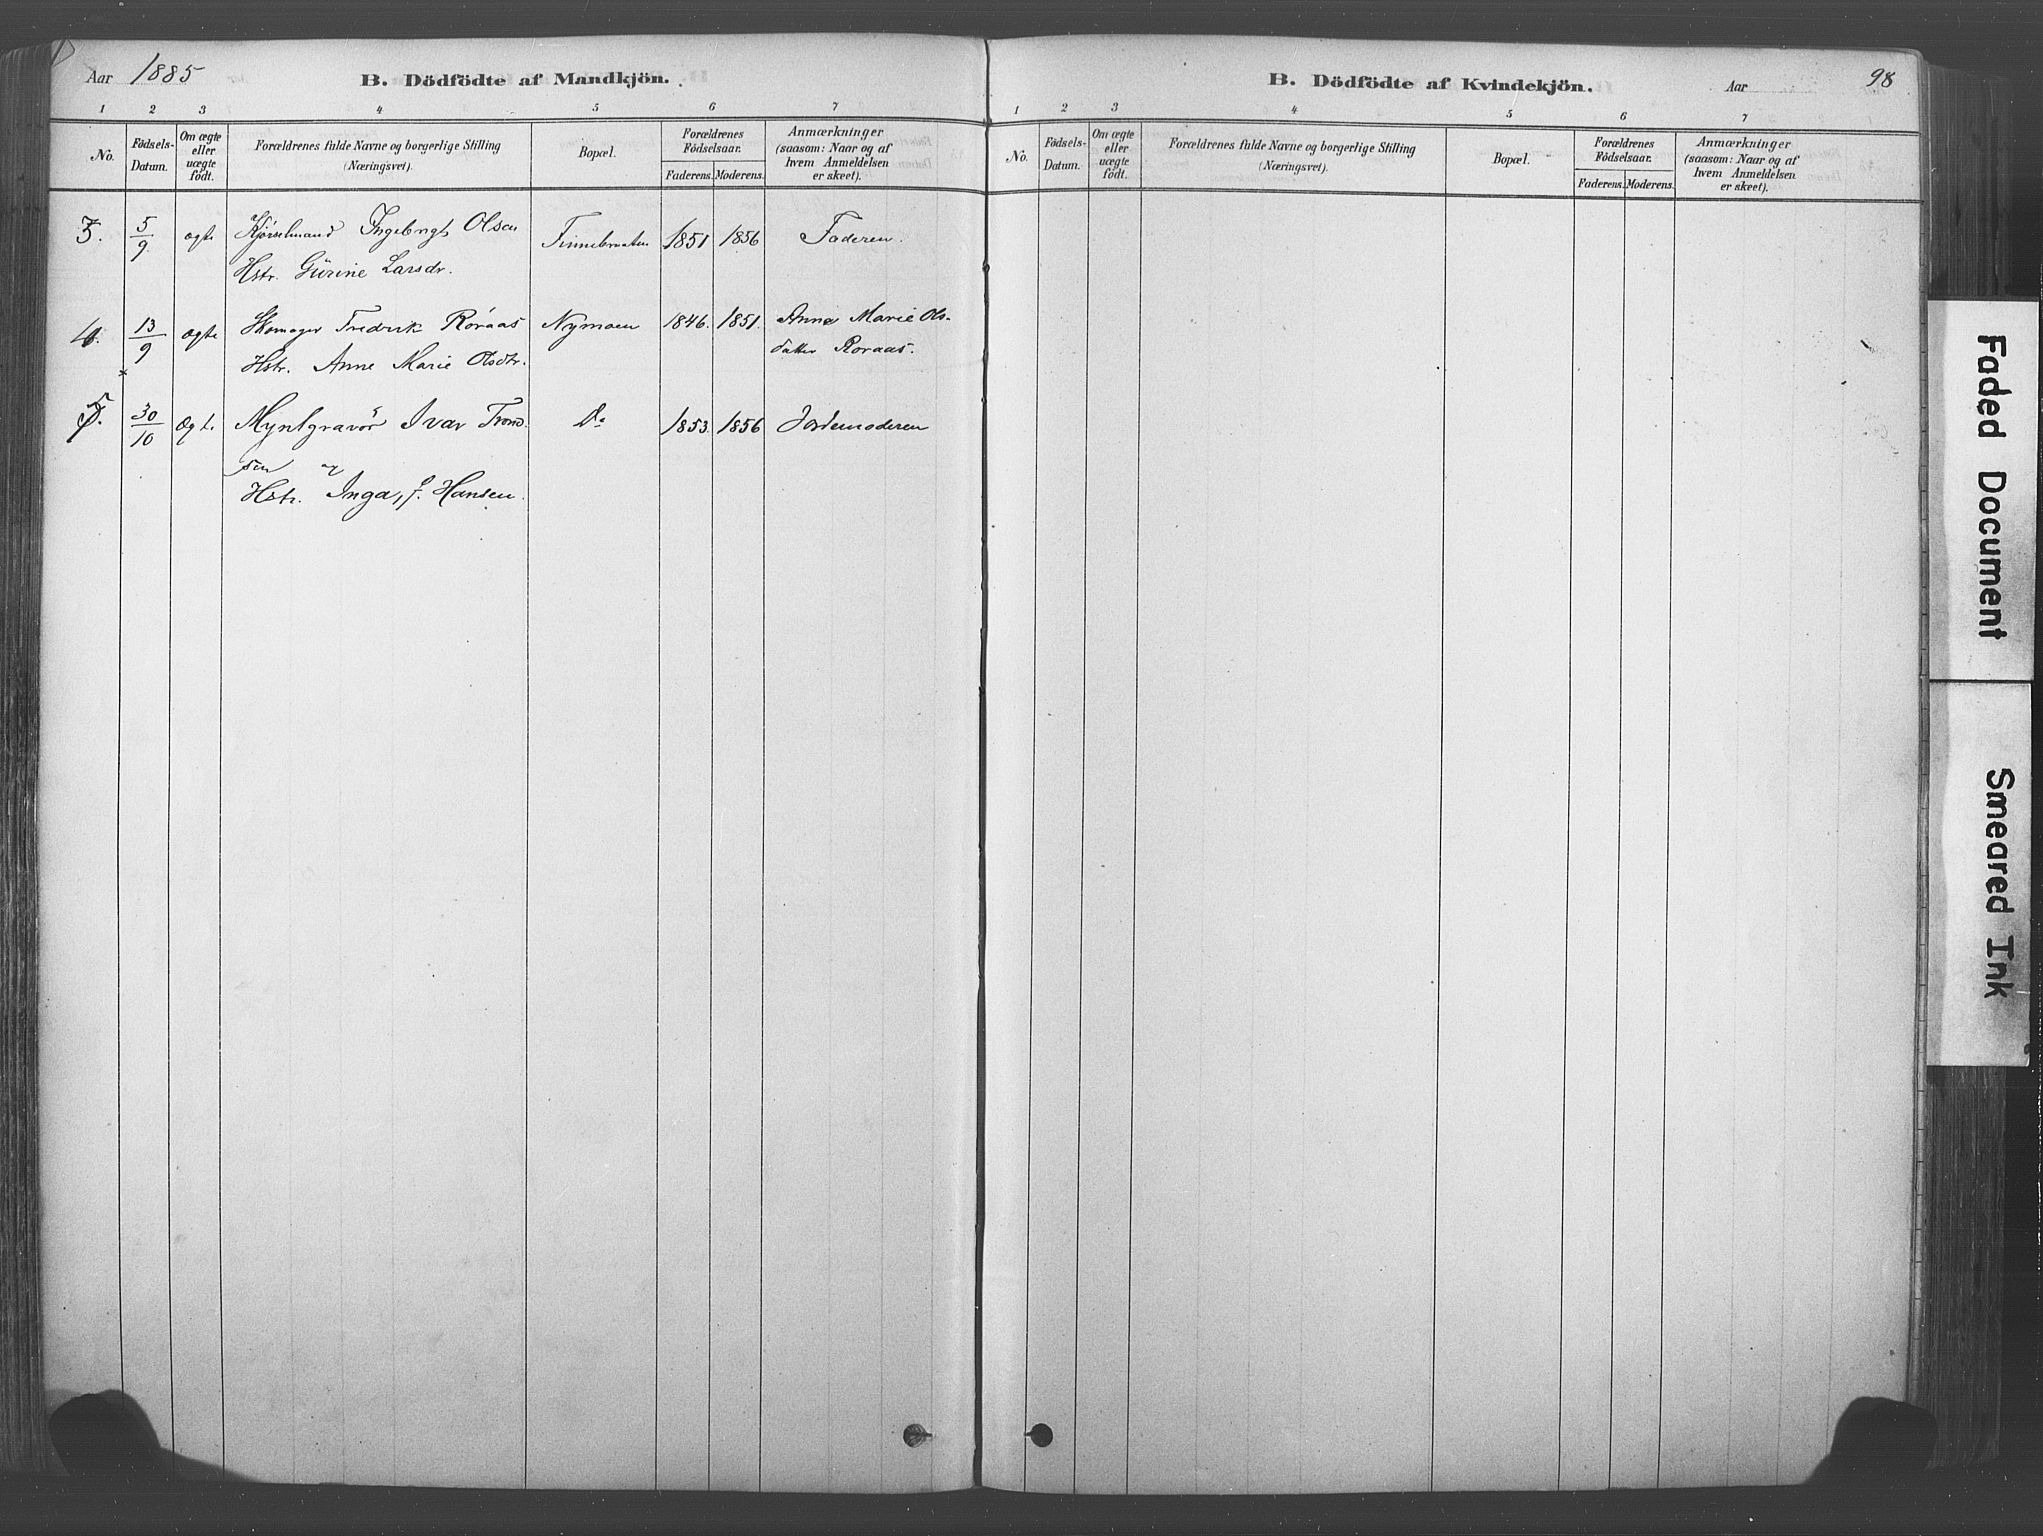 Aar 1885
B. Dödfödte af Mandkjön.
1 2 3 4 5 6 7
No.
Födsels-Datum.
Om ægte eller uægte födt.
Forældrenes fulde Navne og borgerlige Stilling
(Næringsvei).
Bopæl.
Forældrenes Födselsaar.
Faderens. Moderens.
Anmærkninger
(saasom: Naar og af
hvem Anmeldelsen
er skeet).
3. 5/9 ægte Kjørselmand Ingebrigt Olsen Tinnebraaten 1851 1856 Faderen.
Hstr. Gürine Larsdr.
4. 13/9 ægte Skomager Fredrik Roraas Nymoen 1846. 1851. Anne Marie Ols-
Hstr. Anne Marie Olsdtr. datter Roraas.
5. 30/10 ægte Myntgravör Ivar Trond- Do 1853. 1856 Jordemoderen
sen og
Hstr. Inga, f. Hansen.
B. Dödfödte af Kvindekjön.
Aar
98
1 2 3 4 5 6 7
No.
Födsels-
Datum.
Om ægte eller uægte födt.
Forældrenes fulde Navne og borgerlige Stilling
(Næringsvei).
Bopæl.
Forældrenes Födselsaar.
Faderens. Moderens.
Anmærkninger
(saasom: Naar og af
hvem Anmeldelsen
er skeet).
Faded Document
Smeared Ink